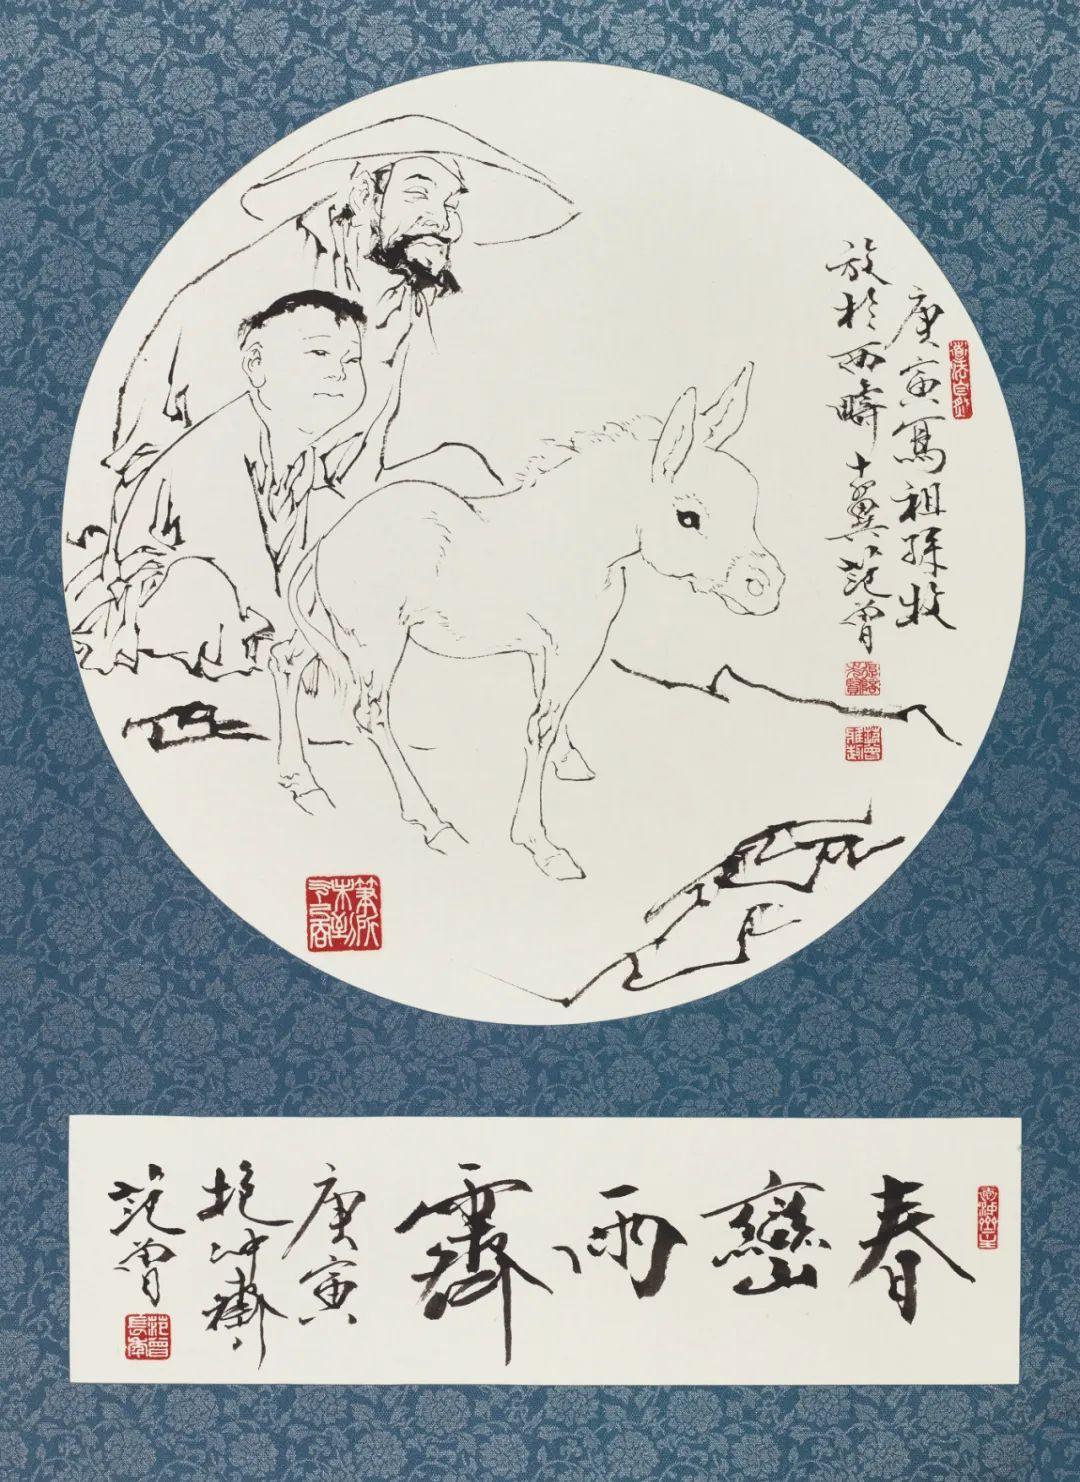 庚寅寫祖孫牧
放於西疇十翼范曾
春巒雨霽
庚寅
抱冲齋
范曾